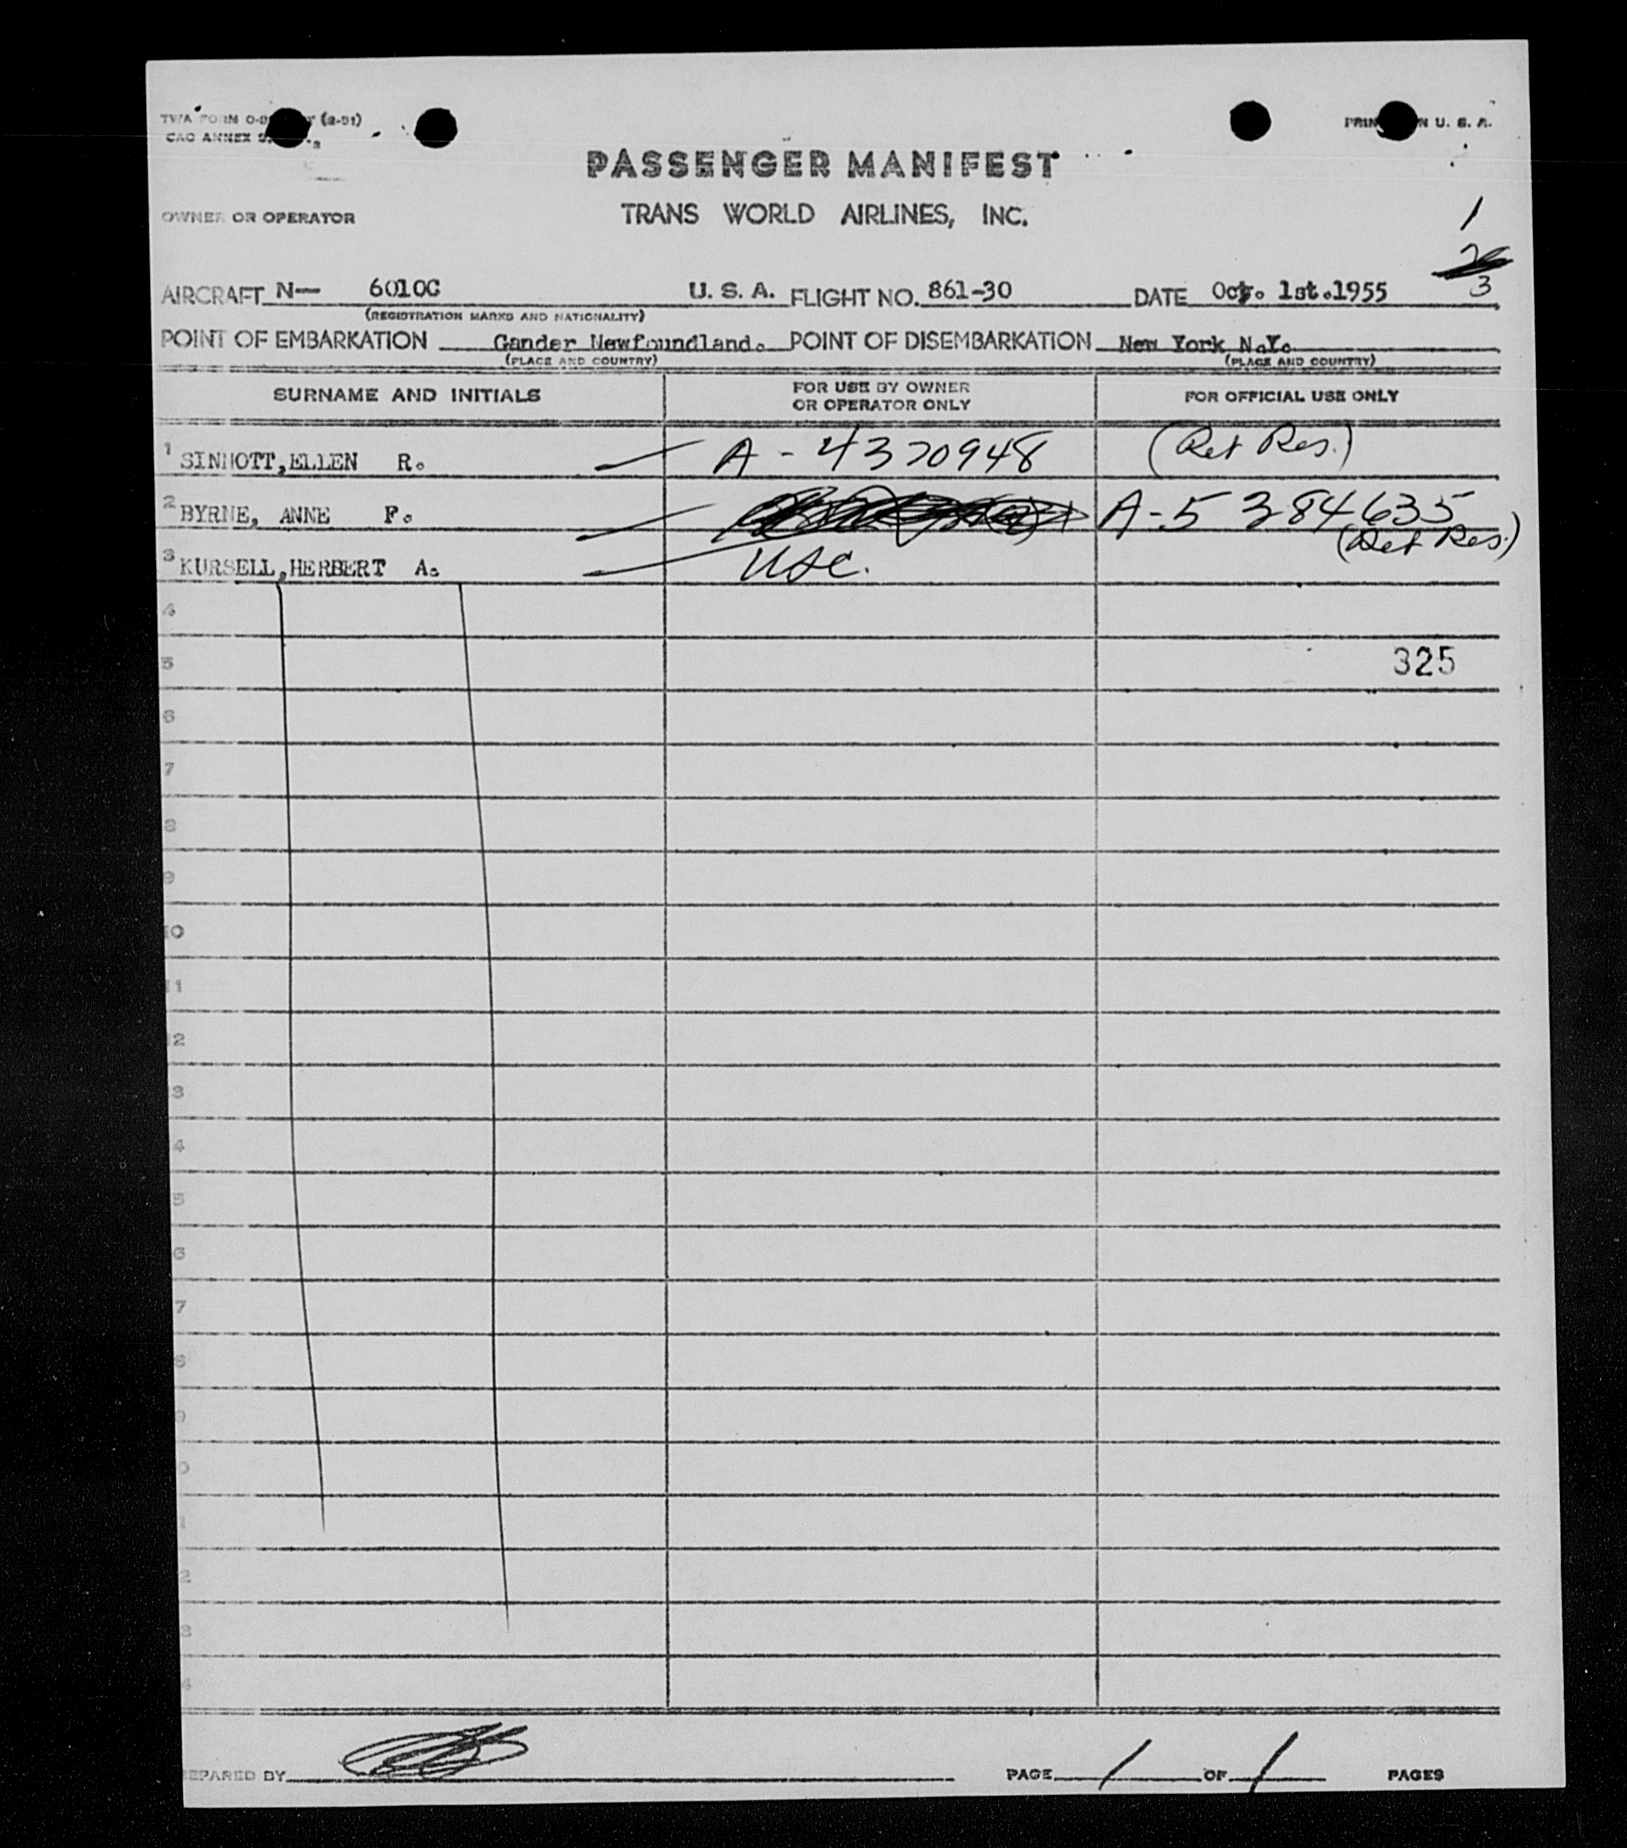 TWA FORM O- (2-51)
PRIN N U. S. A.
CAO ANNEX
PASSENGER MANIFEST
OWNER OR OPERATOR
TRANS WORLD AIRLINES, INC.
1
3
AIRCRAFT N— 6010C U. S. A. FLIGHT NO. 861-30 DATE Oct. 1st.1955
(REGISTRATION MARKS AND NATIONALITY)
POINT OF EMBARKATION Gander Newfoundland. POINT OF DISEMBARKATION New York N.Y.
(PLACE AND COUNTRY) (PLACE AND COUNTRY)
SURNAME AND INITIALS FOR USE BY OWNER OR OPERATOR ONLY FOR OFFICIAL USE ONLY
1 SINNOTT,ELLEN R. A-4370948 (Ret Res.)
2 BYRNE, ANNE F. A-5384635
(Ret Res.)
3 KURSELL,HERBERT A. USC.
4
5 325
6
7
8
9
10
11
2
3
4
5
6
7
8
9
2
3
4
PREPARED BY PAGE 1 OF 1 PAGES